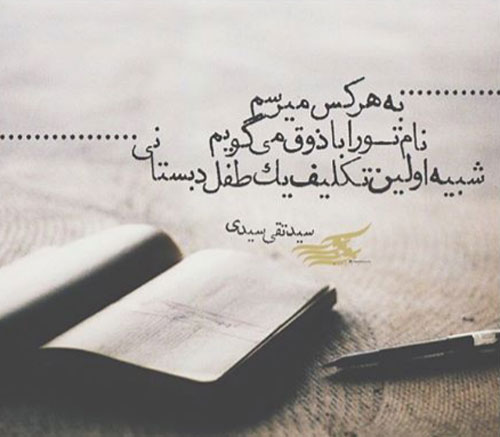 به هر کس میرسم
نام تو را با ذوق می گویم
شبیه اولین تکلیف یک طفل دبستانی
سید تقی سیدی